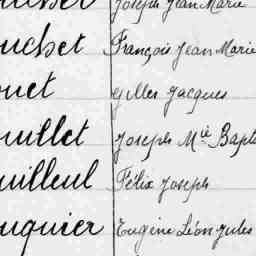 Joseph Jean Marie
uchet François Jean Marie
uet Gilles Jacques
uillet Joseph M ie Bapt
uilleul Félix Joseph
uquier Eugène Léon Jules